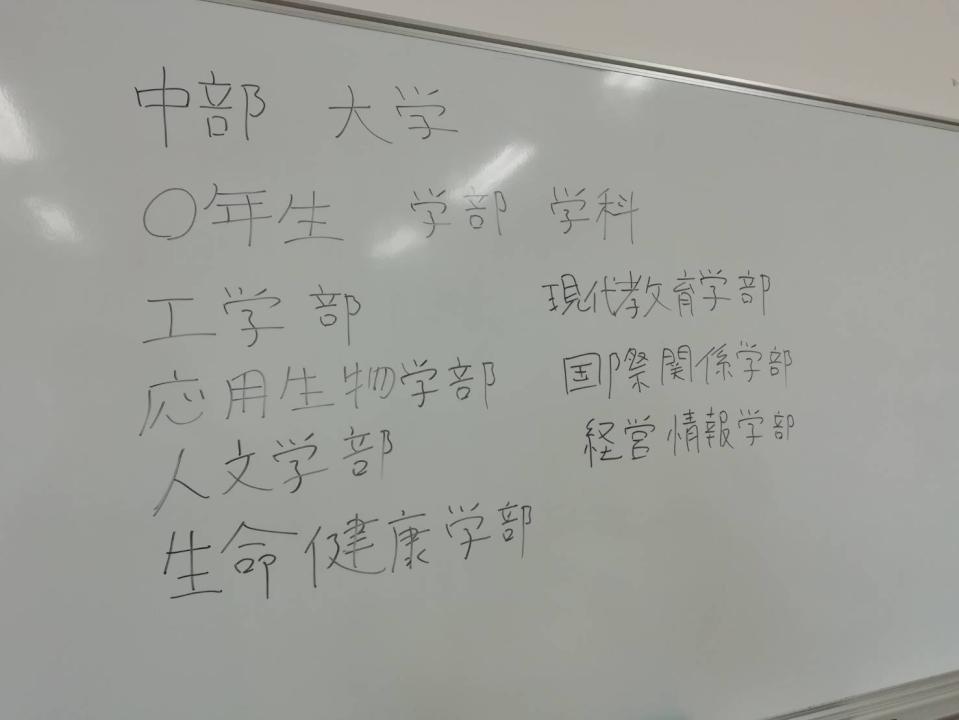 中部 大学
〇年生 学部 学科
工学部
応用生物学部
人文学部
生命健康学部
現代教育学部
国際関係学部
経営情報学部